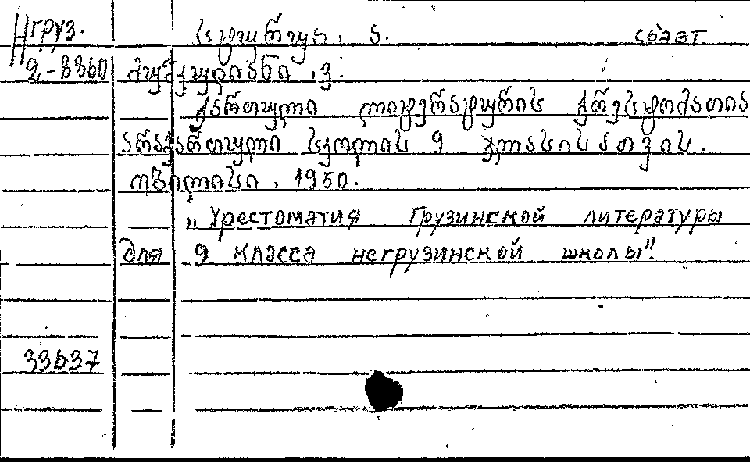 Нгруз.
ა. соавт
2-8860 მუშკუდიანი, ვ.
ქართული ლიტერატურის ქრესტომათია
არაქართული სკოლის 9 კლასისათვის.
თბილისი, 1950.
„Хрестоматия грузинской литературы
для 9 класса негрузинской школы".
33637